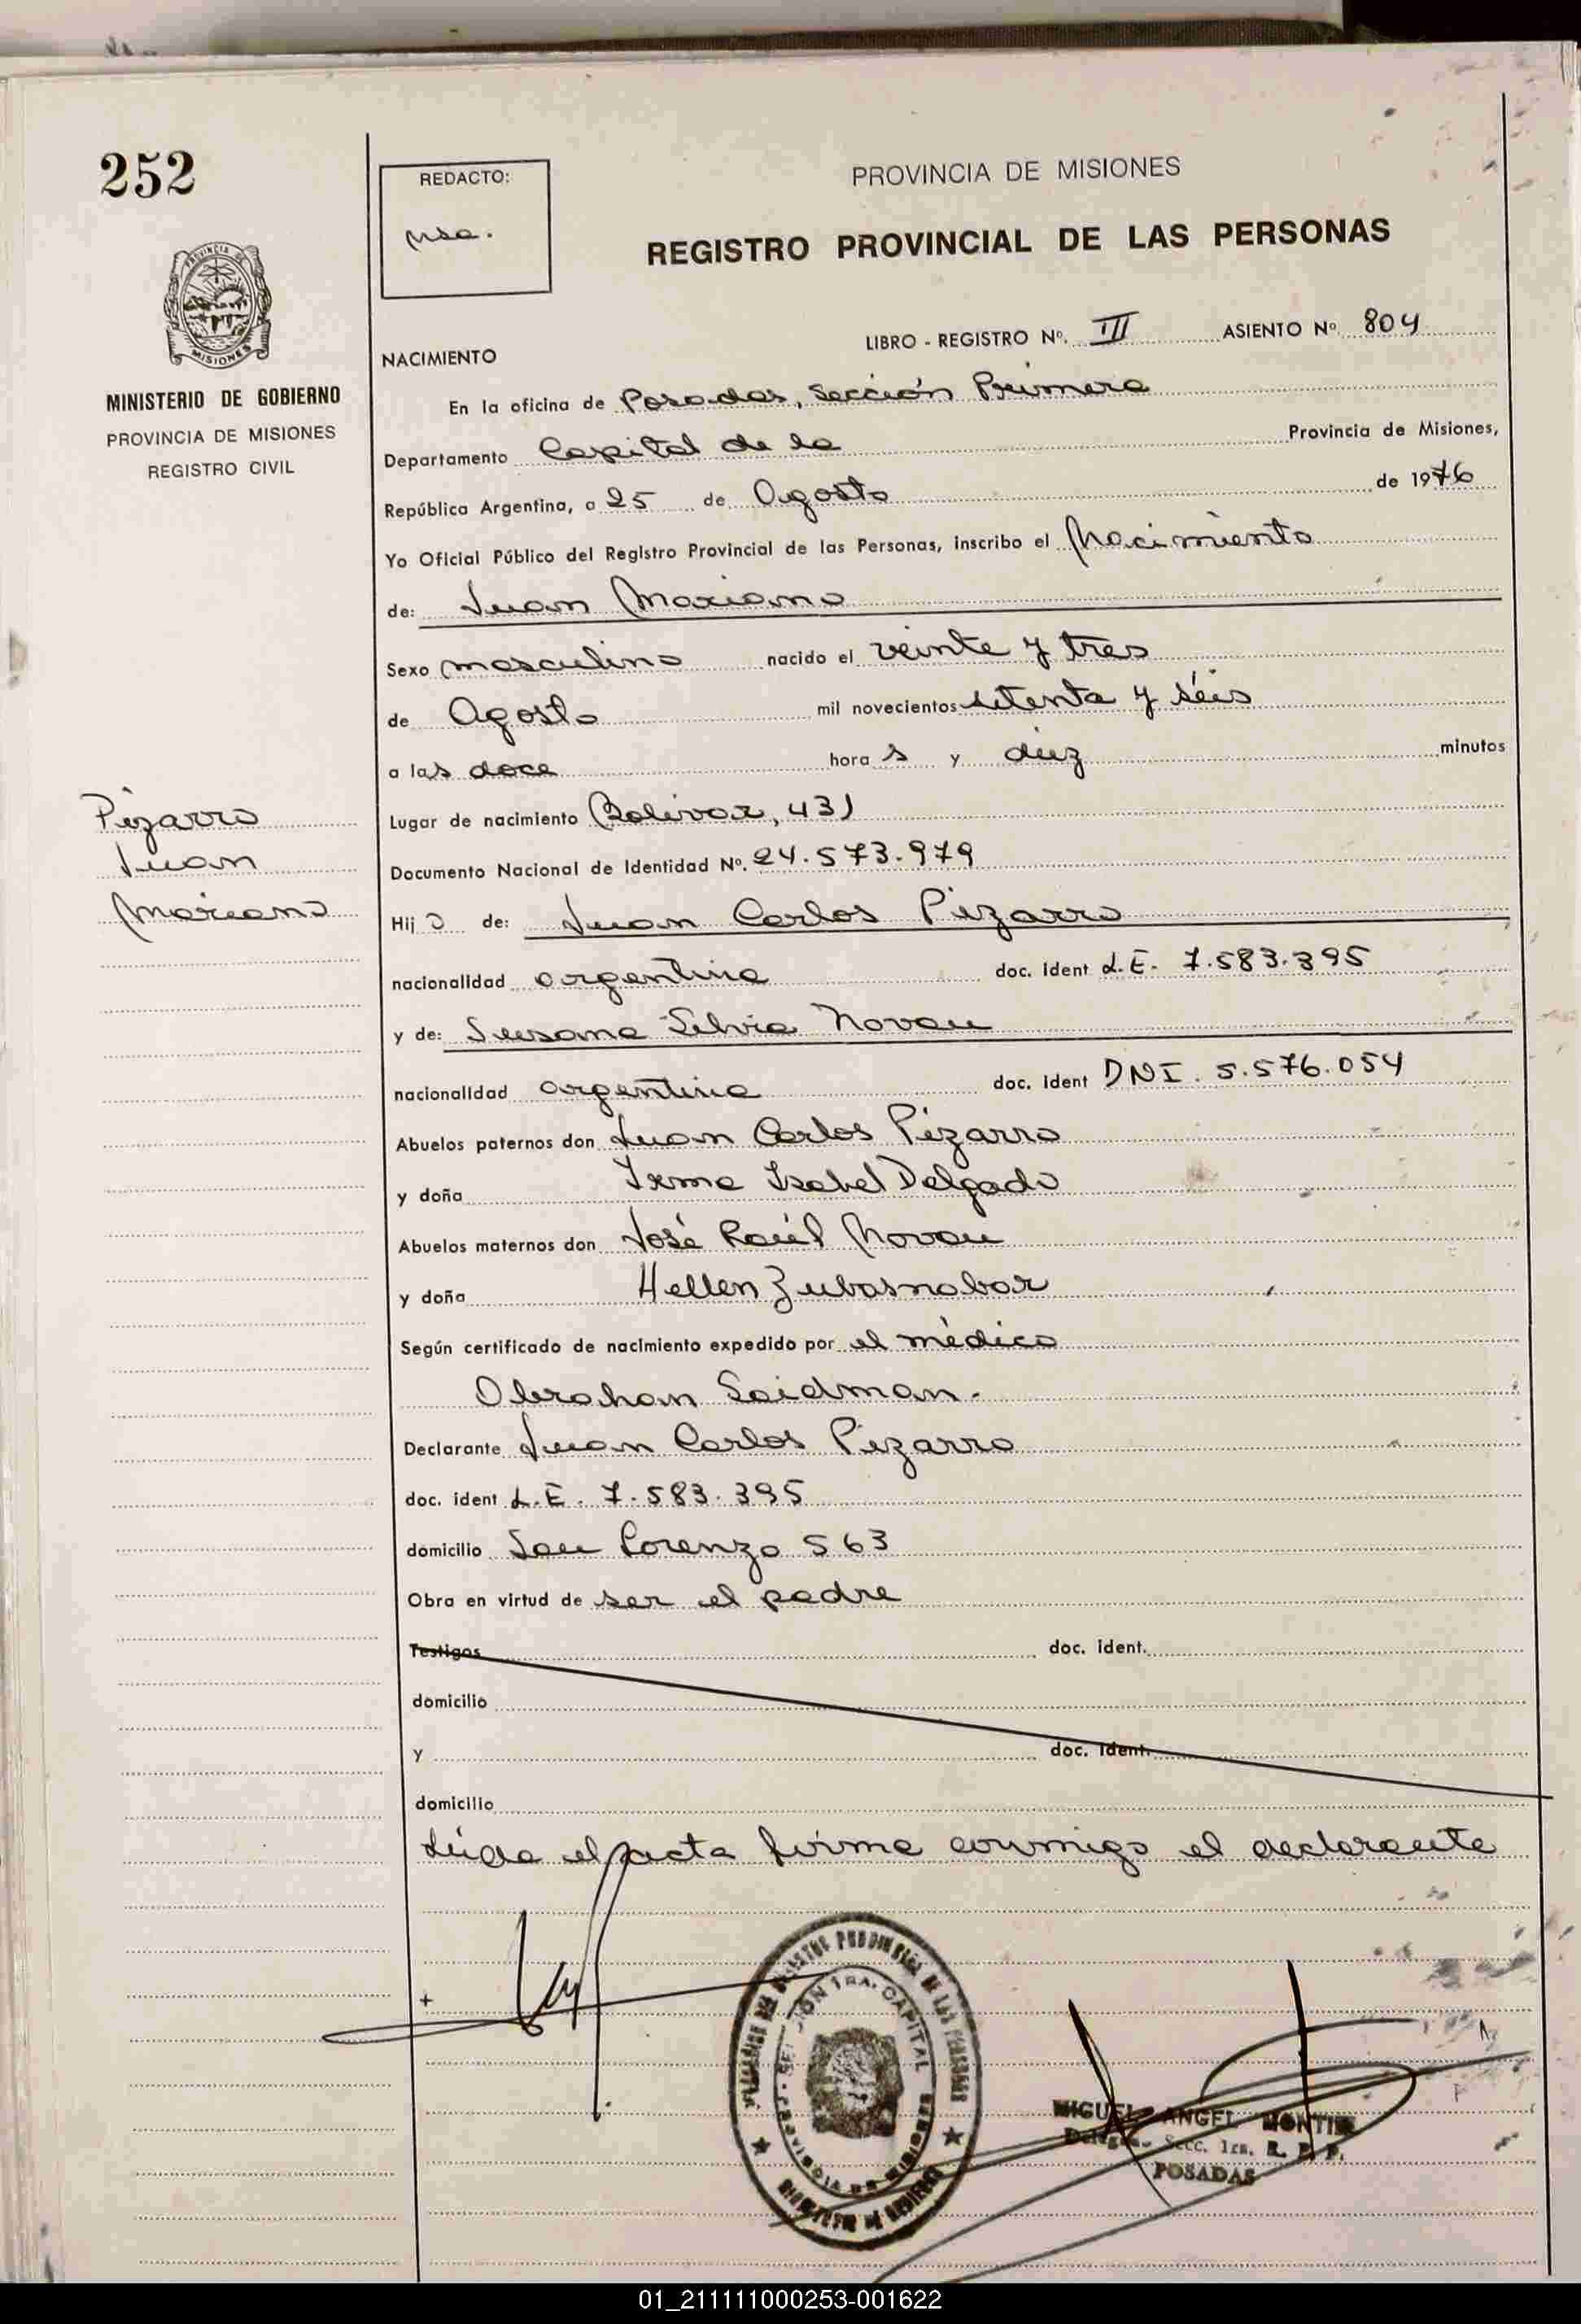 252
REDACTO:
PROVINCIA DE MISIONES
REGISTRO PROVINCIAL DE LAS PERSONAS
LIBRO - REGISTRO Nº. III ASIENTO Nº 804
NACIMIENTO
MISIONES
MINISTERIO DE GOBIERNO
PROVINCIA DE MISIONES
REGISTRO CIVIL
En la oficina de Posadas, Sección Primera
Departamento Capital de la Provincia de Misiones,
República Argentina, a 25 de Agosto de 1976
Yo Oficial Público del Registro Provincial de las Personas, inscribo el Nacimiento
de: Juan Mariano
Sexo masculino nacido el veinte y tres
de Agosto mil novecientos setenta y séis
a las doce horas y diez minutos
Pizarro
Juan
Mariano
Lugar de nacimiento Bolívar, 431
Documento Nacional de Identidad Nº. 24.573.979
Hijo de: Juan Carlos Pizarro
nacionalidad argentina doc. ident L.E. 7.583.395
y de: Susana Silvia Novau
nacionalidad argentina doc. ident DNI. 5.576.054
Abuelos paternos don Juan Carlos Pizarro
y doña Irma Isabel Delgado
Abuelos maternos don José Raúl Novau
y doña Hellen Zubasnabar
Según certificado de nacimiento expedido por el médico
Abrahan Saidman.
Declarante Juan Carlos Pizarro
doc. ident L.E. 7.583.395
domicilio San Lorenzo 563
Obra en virtud de ser el padre
Testigos doc. ident.
domicilio
y doc. ident.
domicilio
Leída el acta firma conmigo el declarante
SECCION 1RA. CAPITAL
MIGUEL ANGEL
Secc. 1ra. R. P. P.
POSADAS
01_211111000253-001622